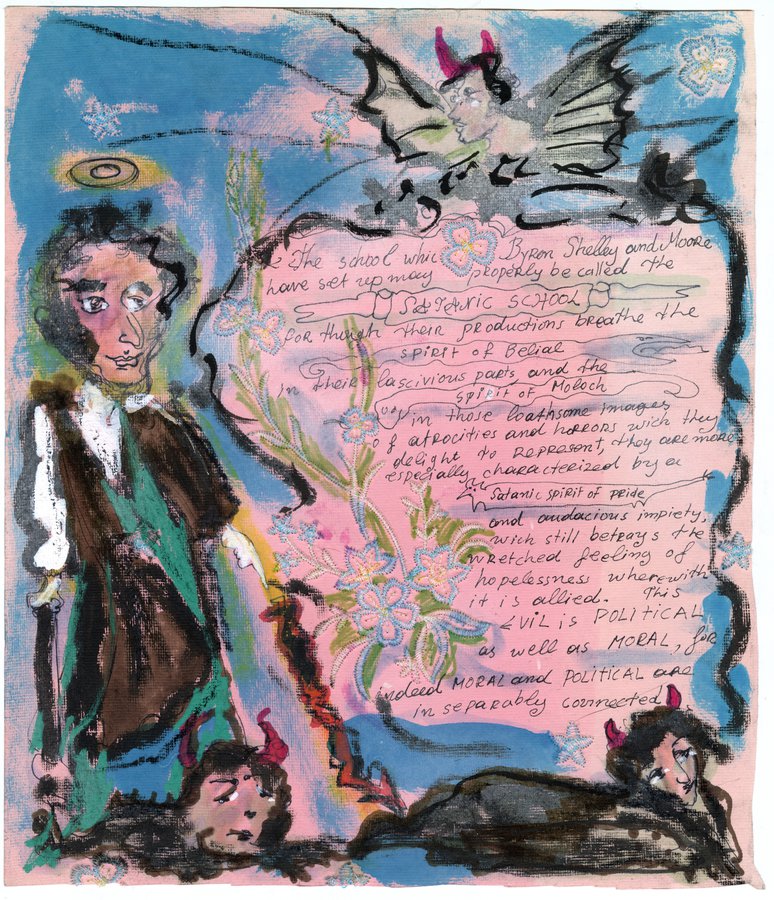 The school whic Byron Shelley and Moore
have set up may properly be called the
SATANIC SCHOOL
for though their productions breathe the
spirit of Belial
in their lascivious parts and the
spirit of Moloch
in those loathsome images
of atrocities and horrors wich they
delight to represent, they are more
especially characterized by a
Satanic spirit of pride
and audacious impiety,
wich still betrays the
wretched feeling of
hopelessness wherewith
it is allied. This
EVIL is POLITICAL
as well as MORAL, for
indeed MORAL and POLITICAL are
in separably connected